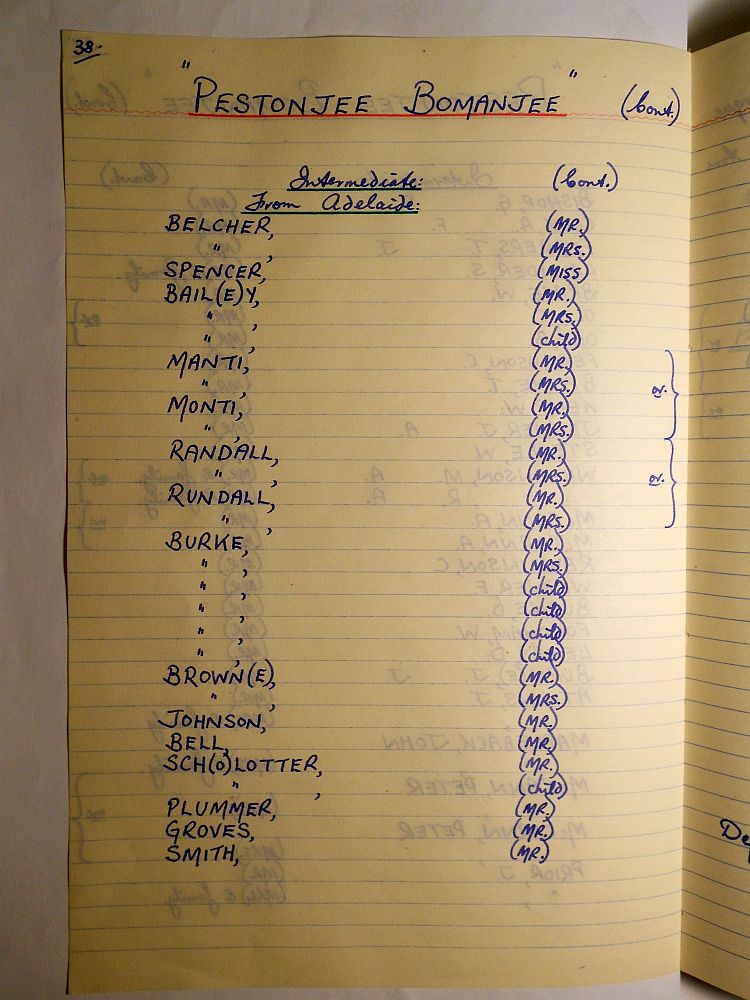 38.
"PESTONJEE BOMANJEE" (Cont.)
Intermediate: (Cont.)
From Adelaide:
BELCHER, (MR.)
" , (MRS.)
SPENCER, (MISS)
BAIL(E)Y, (MR.)
" , (MRS.)
" , (child)
MANTI, (MR.)
" , (MRS.) or.
MONTI, (MR.)
" , (MRS.)
RANDALL, (MR.)
" , (MRS.) or.
RUNDALL, (MR.)
" , (MRS.)
BURKE, (MR.)
" , (MRS.)
" , (child)
" , (child)
" , (child)
" , (child)
BROWN(E), (MR.)
" , (MRS.)
JOHNSON, (MR.)
BELL, (MR.)
SCH(O)LOTTER, (MR.)
" , (child)
PLUMMER, (MR.)
GROVES, (MR.)
SMITH, (MR.)